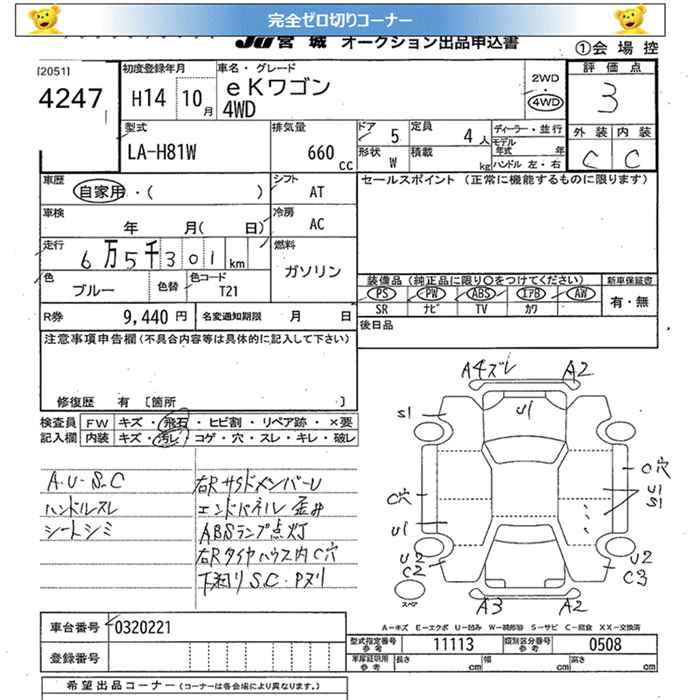 完全ゼロ切りコーナー
JU宮城 オークション出品申込書
①会場控
[2051]
4247
初度登録年月
H14 10月
車名・グレード
eKワゴン
4WD
2WD
・
4WD
評価点
3
外装 内装
C C
型式
LA-H81W
排気量
660 cc
ドア 5
定員 4人
形状 W
積載 kg
ディーラー・並行
モデル年式 年
ハンドル 左・右
車歴
自家用・( )
シフト AT
セールスポイント (正常に機能するものに限ります)
車検
年 月( 日)
冷房 AC
走行
6万5千301km
燃料
ガソリン
色
ブルー
色替
色コード
T21
装備品 (純正品に限り○をつけてください)
新車保証書
PS PW ABS エアB AW
SR ナビ TV カワ
有・無
R券 9,440円
名変通知期限 月 日
後日品
注意事項申告欄(不具合内容等は具体的に記入して下さい)
修復歴 有 [箇所 ]
検査員記入欄
FW キズ・飛石・ヒビ割・リペア跡・×要
内装 キズ・汚レ・コゲ・穴・スレ・キレ・破レ
A・U・S・C
ハンドルスレ
シートシミ
右Rサイドメンバーu
エンドパネル歪み
ABSランプ点灯
右Rタイヤハウス内C穴
下廻りS.C・Pヌリ
A4ズレ A2
S1
U1
C穴
C穴
U1
S1
U1
U2
C2
U2
C3
スペア
A3 A2
A−キズ E−エクボ U−凹み W−補修跡 S−サビ C−腐食 XX−交換済
車台番号 0320221
型式指定番号 参考 11113
類別区分番号 参考 0508
登録番号
車庫証明用 参考
長さ cm
幅 cm
高さ cm
希望出品コーナー (コーナーは各会場により異なります。)